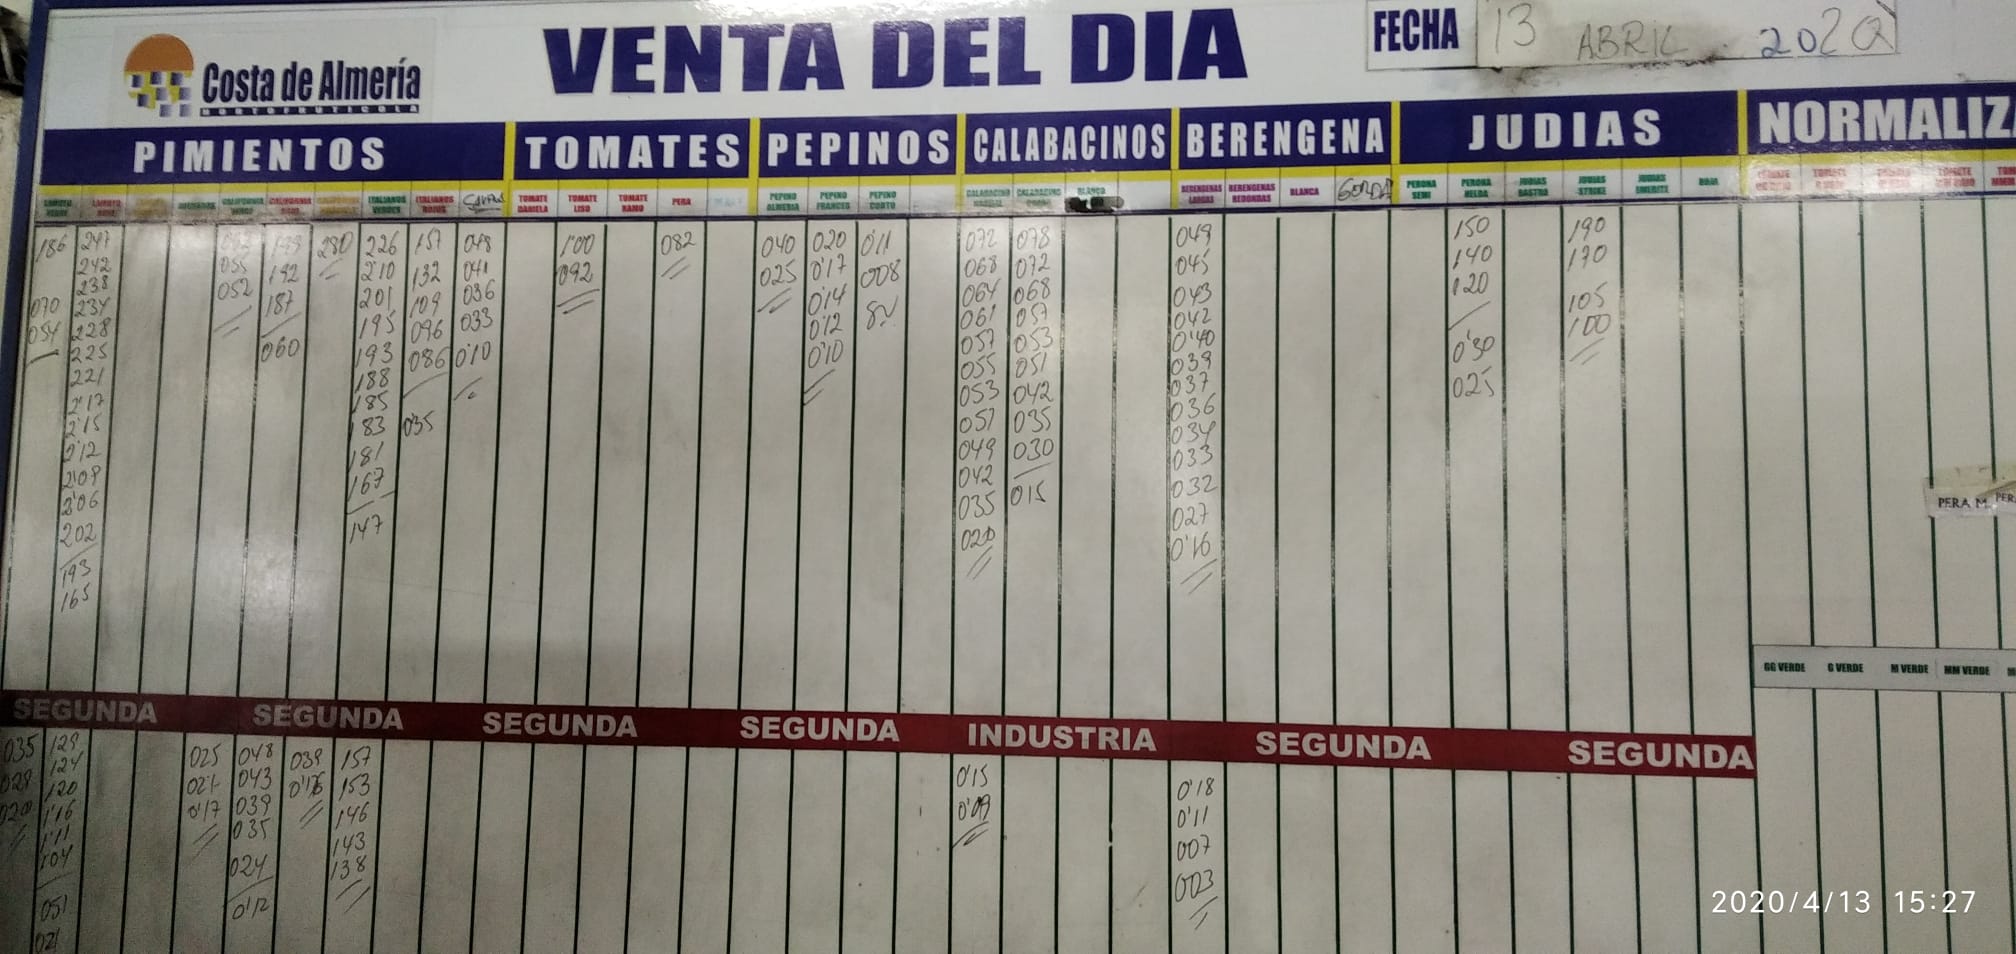 Costa de Almería
HORTOFRUTICOLA
VENTA DEL DIA
FECHA 13 ABRIL 2020
PIMIENTOS TOMATES PEPINOS CALABACINOS BERENGENA JUDIAS NORMALIZ
LAMUYO VERDE
ITALIANOS VERDES
ITALIANOS ROJOS
TOMATE DANIELA
TOMATE LISO
TOMATE RAMO
PERA
PEPINO ALMERIA
PEPINO FRANCES
PEPINO CORTO
BLANCO
BERENGENAS LARGAS
BERENGENAS REDONDAS
BLANCA
GORDA
PERONA SEMI
PERONA HELDA
JUDIAS RASTRA
JUDIAS STRIKE
JUDIAS EMERITE
186
070
054
247
242
238
234
228
225
221
2'17
2'15
2'12
2'09
2'06
202
193
165
055
052
199
192
187
060
280
226
210
201
195
193
188
185
183
181
167
147
157
132
109
096
086
035
048
041
036
033
0'10
1'00
092
082
040
025
020
0'17
0'14
0'12
0'10
0'11
008
072
068
064
061
057
055
053
051
049
042
035
020
078
072
068
057
053
051
042
035
030
015
049
045
043
042
0'40
039
037
036
034
033
032
027
0'16
150
140
120
0'30
025
190
170
105
100
PERA M.
PER
GG VERDE G VERDE M VERDE MM VERDE M
SEGUNDA SEGUNDA SEGUNDA SEGUNDA INDUSTRIA SEGUNDA SEGUNDA
035
028
020
129
124
120
1'16
1'11
104
051
021
025
021
0'17
048
043
039
035
024
0'12
039
0'16
157
153
146
143
138
0'15
0'09
0'18
0'11
007
003
2020/4/13 15:27